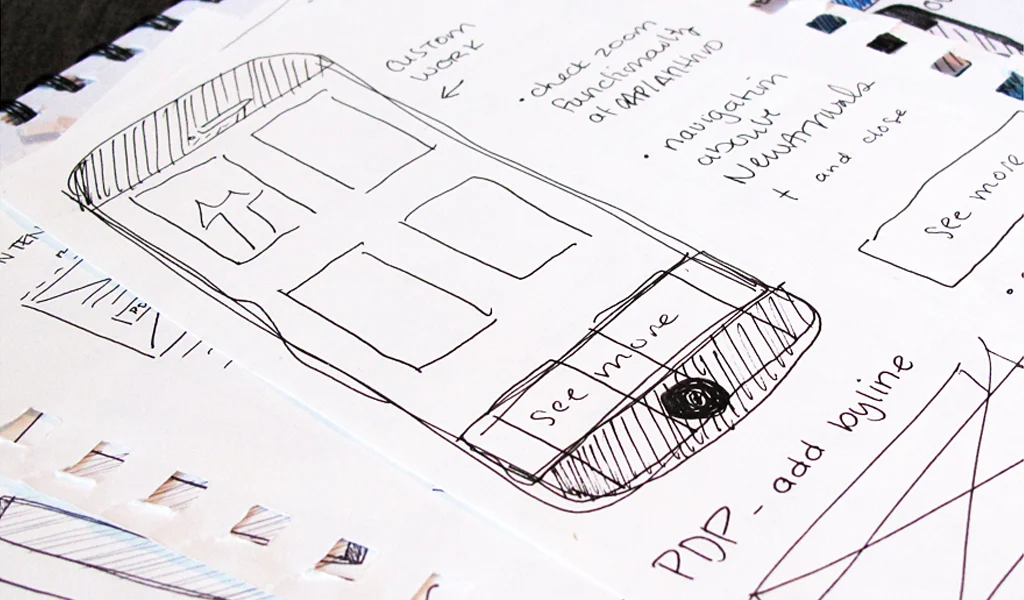 CUSTOM
WORK
• check zoom
functionality
• navigation
above
New Arrivals
+ and close
see more
see more
PDP - add byline